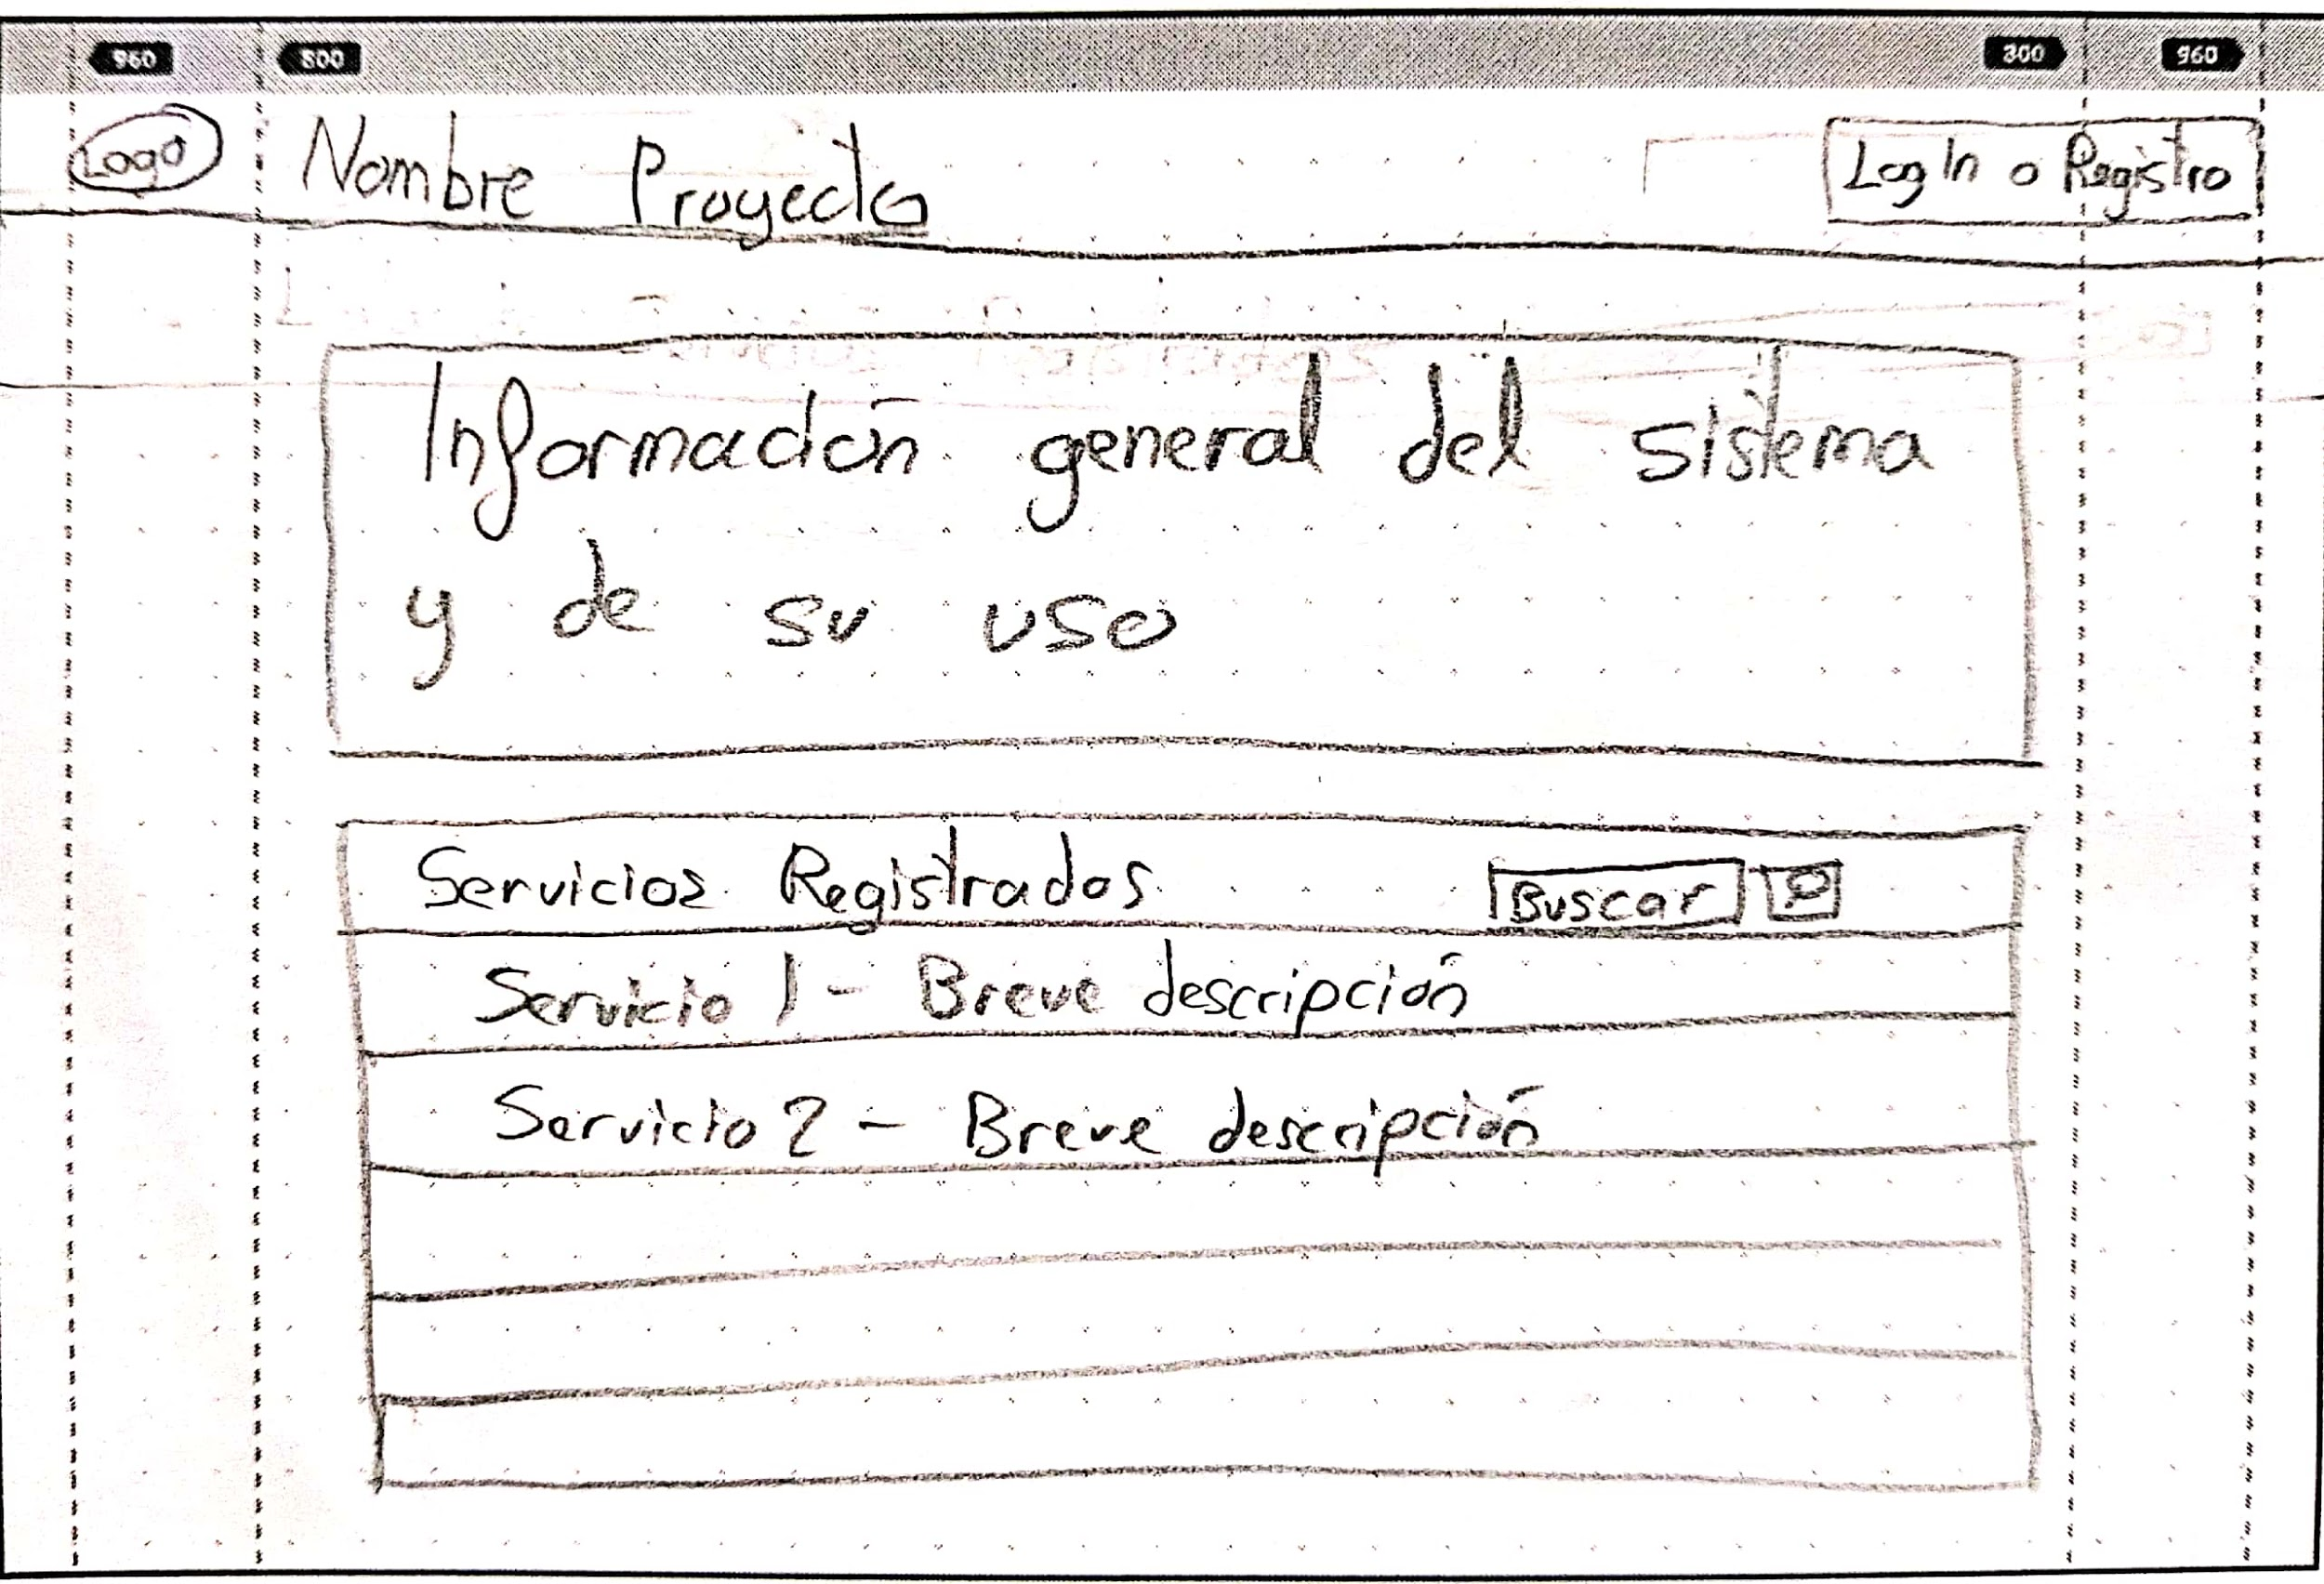 960 800 800 960
Logo Nombre Proyecto Log In o Registro
Información general del sistema
y de su uso
Servicios Registrados Buscar
Servicio 1 - Breve descripción
Servicio 2 - Breve descripción